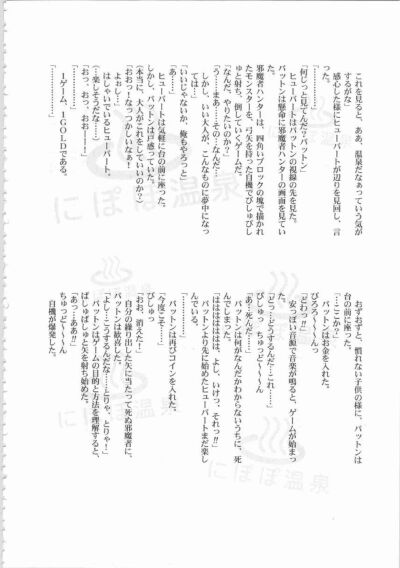 これを見ると、ああ、温泉だなぁっていう気が
するがな」
感心した様にヒューバートが辺りを見回し、言
った。
「………………」
「何じっと見てんだ?バットン」
ヒューバートはバットンの視線の先を見た。
バットンは懸命に邪魔者ハンターの画面を見てい
た。
邪魔者ハンターは、四角いブロックの塊で描かれ
たモンスターを、弓矢を持った自機でびしゅびし
ゅと射ち、倒していくゲームだ。
「なんだ、やりたいのか?」
「う……まあ……その…なんだ…」
しかし、いい大人が、こんなものに夢中になっ
ては…
「いいじゃないか、俺もやろっと」
「あ……」
ヒューバートは気軽に台の前に座った。
しかし、バットンは戸惑っていた。
(本当に、大人がこれをしていいのか?)
「おおっ!なっつかしいなぁ!
よぉし…」
はしゃいでいるヒューバート。
(…楽しそうだな……)
「おっ、おっ、おおー!」
「………………」
1ゲーム、1GOLDである。
「………………」
おずおずと、慣れない子供の様に、バットンは
台の前に座った。
「…ここか?」
バットンはお金を入れた。
ぴろろ〜〜〜〜んっ
「どわっ!!」
安っぽい音源で音楽が鳴ると、ゲームが始まっ
た。
「どっ…どうするんだ…これ……」
びしゅっ ちゅっど〜〜〜〜ん
「あ…死んだ……」
バットンは何がなんだかわからないうちに、死
んでしまった。
「はははははは、よし、いけっ、それっ!!」
バットンより先に始めたヒューバートまだ楽し
んでいる。
「………………」
バットンは再びコインを入れた。
「今度こそ……」
びしゅっ
「おお、消えた!」
自分の繰り出した矢に当たって死ぬ邪魔者に、
バットンは歓喜した。
「よしこうするんだな…とりゃ、とりゃ!」
バットンはゲームの目的と方法を理解すると、
ばしゅばしゅと矢を射ち始めた。
「あっ…ああ!!」
ちゅっど〜〜〜〜ん
自機が爆発した。
にぽぽ温泉
にぽぽ温泉